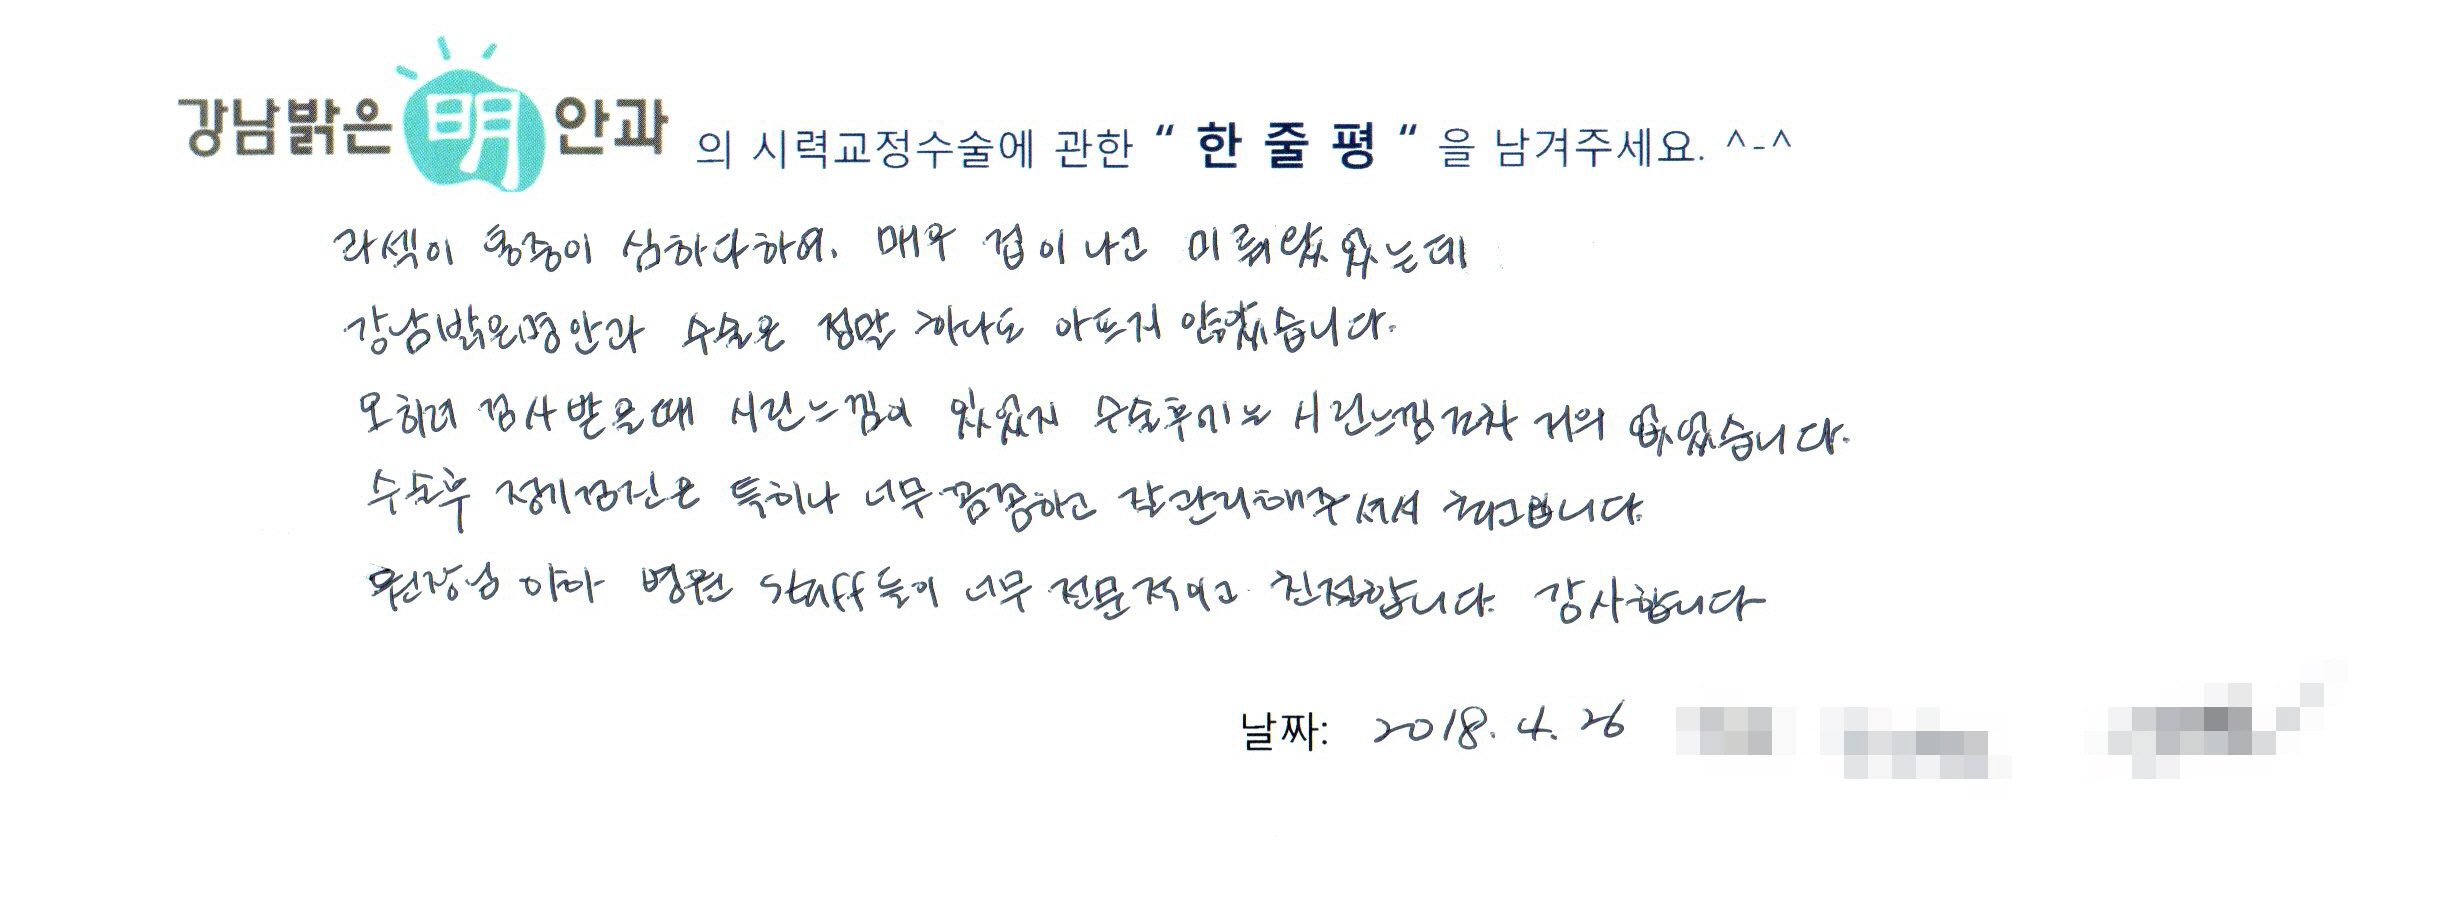 강남밝은明안과 의 시력교정수술에 관한 “ 한 줄 평 “ 을 남겨주세요. ^-^
라섹이 통증이 심하다하여. 매우 겁이나고 미뤄왔었는데
강남밝은명안과 수술은 정말 하나도 아프지 않았습니다.
오히려 검사받을때 시린느낌이 있었지 수술후에는 시린느낌조차 거의 없었습니다.
수술후 정기검진은 특히나 너무꼼꼼하고 잘관리해주셔서 최고입니다.
원장님 이하 병원 staff들이 너무 전문적이고 친절합니다. 감사합니다
날짜: 2018. 4. 26